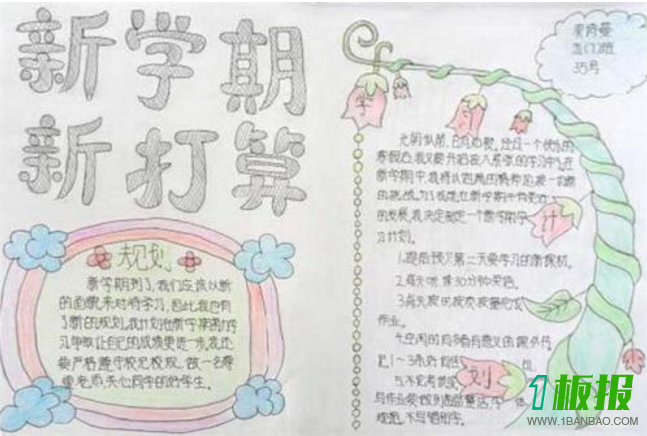 新学期
新打算
规划
新学期到了,我们应该以新
的面貌来对待学习,因此我也有
了新的规划。我计划在新学期里
习争取让自己的成绩更进一步,我还
要严格遵守校纪校规,做一名尊
重老师,关心同学的好学生。
五(7)班
35号
学
习
计
划
光阴似箭,日月如梭,经过一个快乐的
寒假后,我又要开始投入紧张的学习中,在
新学期中,我将以饱满的精神迎接一切新
的挑战,为了我能在新学期中有更好
的发展,我决定制定一个新学期学
习计划。
1.提前预习第二天要学习的新教材。
2.每天听读30分钟英语。
3.每天按时按质按量完成
作业。
4.空闲的时间看有意义的课外书
1~3
5.不论考试
与作业
不写错别字。
1板报
WWW.1BANBAO.COM